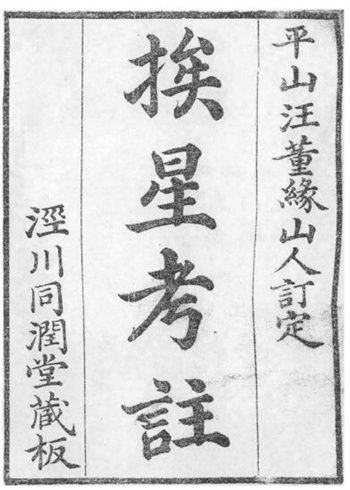 平山汪董緣山人訂定
挨星考註
涇川同潤堂藏板